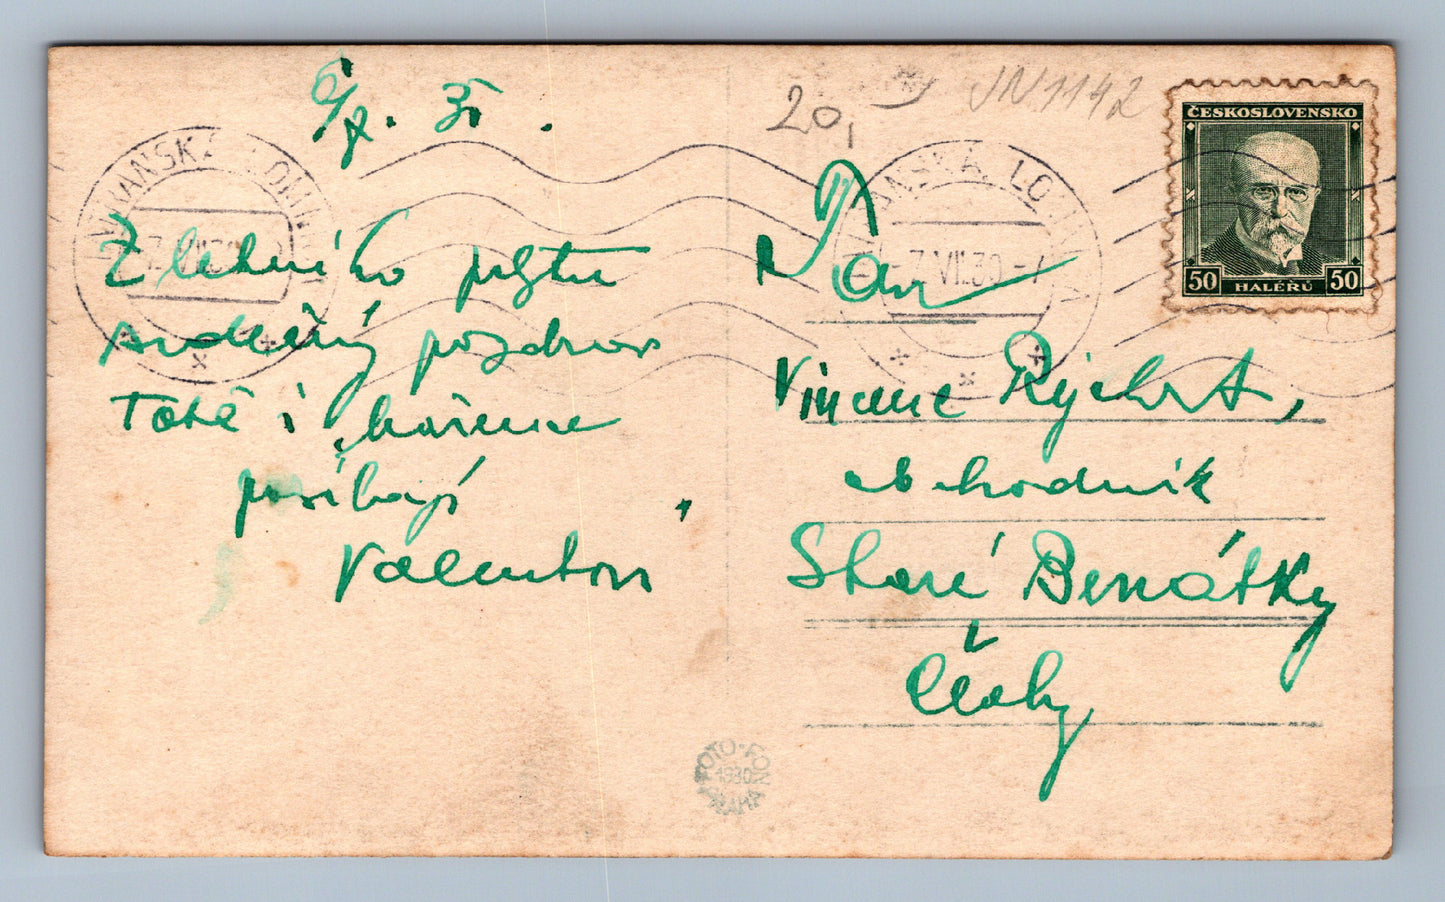 20,
JN1142
ČESKOSLOVENSKO
50 HALÉŘŮ 50
TATRANSKÁ LOMNICA
TATRANSKÁ LOMNICA
7.VII.30-7
Z letního pobytu
srdečný pozdrav
Tobě i
posílají
Valentovi
Pan
Vincenc Rychrt,
obchodník
Staré Benátky
Čechy
FOTO-FON
1930
PRAHA